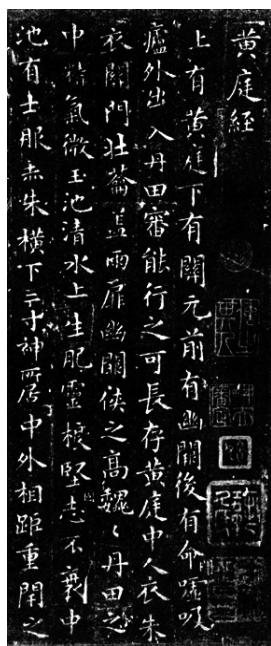 黄庭経
上有黄庭下有關元前有幽闕後有命噓吸
廬外出入丹田審能行之可長存黄庭中人衣朱
衣關門壯籥蓋兩扉幽闕俠之髙魏〻丹田之
中精氣微玉池清水上生肥靈根堅志不衰中
池有士服赤朱横下三寸神所居中外相距重閇之